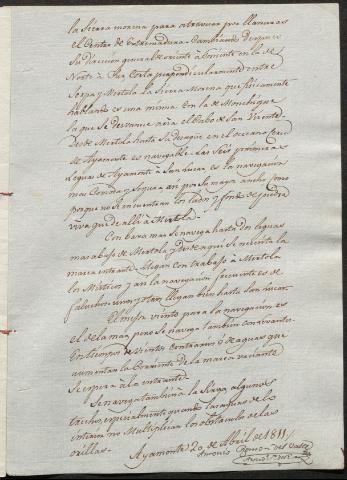 la Sierra morena para atravesar por llanuras
el Centro de Extremadura. Cambiando despues
su direccion general de oriente a Poniente en la de
Norte a Sur, Corta perpendicularmente entre
Serpa y Mertola la Sierra Morena que fisicamente
hablando es una misma con la de Monchique
la que se desvanece acia el Cabo de San Vicente
Desde Mertola hasta su desagüe en el oceano cerca
de Ayamonte es navegable. Las seis primeras
leguas de Ayamonte a Sanlucar es la navegacion
mas comoda y segura asi por su mayor ancho como
porque no se encuentran los lados y fondo de piedra
viva que de alli a Mertola.
Con baxa mar se navega hasta dos leguas
mas abaxo de Mertola y desde aqui se necesita la
marea entrante. Llegan con trabaxo à Mertola
los Misticos y aun la navegacion frecuente es de
faluchos cuyo porte llegan bien hasta Sanlucar.
El mejor viento para la navegacion es
el de la mar, pero se navega tambien con levante.
En tiempos de Vientos Contrarios ó de aguas que
aumentan la Corriente de la marea vaciante
se espera à la entrante.
Se navega tambien à la Sirga algunos
trechos, especialmente quando las aguas de lo
interior no Multiplican los obstaculos de las
orillas. Ayamonte 20 de Abril de 1811
Antonio Ramon del Valle